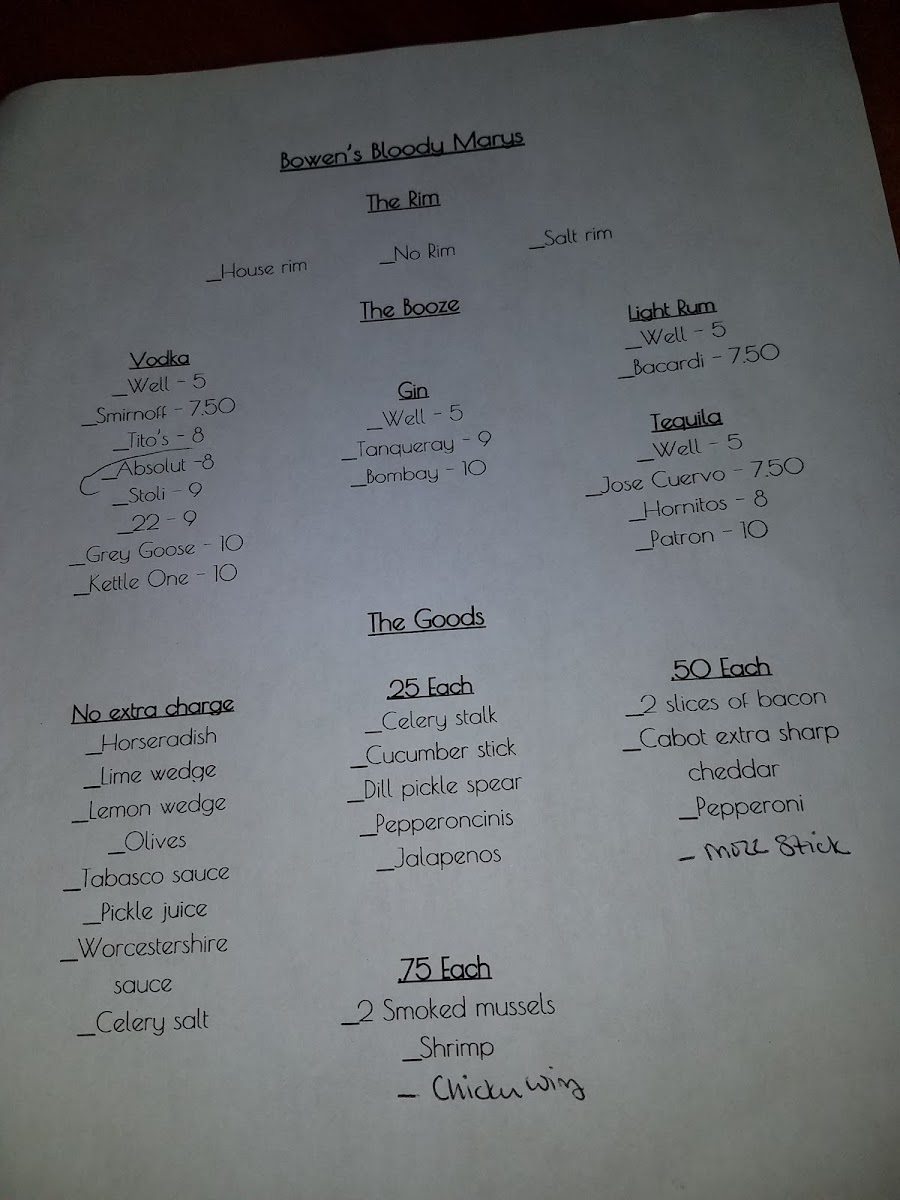 Bowen's Bloody Marys
The Rim
_House rim
_No Rim
_Salt rim
The Booze
Vodka
_Well - 5
_Smirnoff - 7.50
_Tito's - 8
_Absolut -8
_Stoli - 9
_22 - 9
_Grey Goose - 10
_Kettle One - 10
Gin
_Well - 5
_Tanqueray - 9
_Bombay - 10
Light Rum
_Well - 5
_Bacardi - 7.50
Tequila
_Well - 5
_Jose Cuervo - 7.50
_Hornitos - 8
_Patron - 10
The Goods
No extra charge
_Horseradish
_Lime wedge
_Lemon wedge
_Olives
_Tabasco sauce
_Pickle juice
_Worcestershire
sauce
_Celery salt
.25 Each
_Celery stalk
_Cucumber stick
_Dill pickle spear
_Pepperoncinis
_Jalapenos
.50 Each
_2 slices of bacon
_Cabot extra sharp
cheddar
_Pepperoni
- Mozz Stick
.75 Each
_2 Smoked mussels
_Shrimp
- Chicken wing